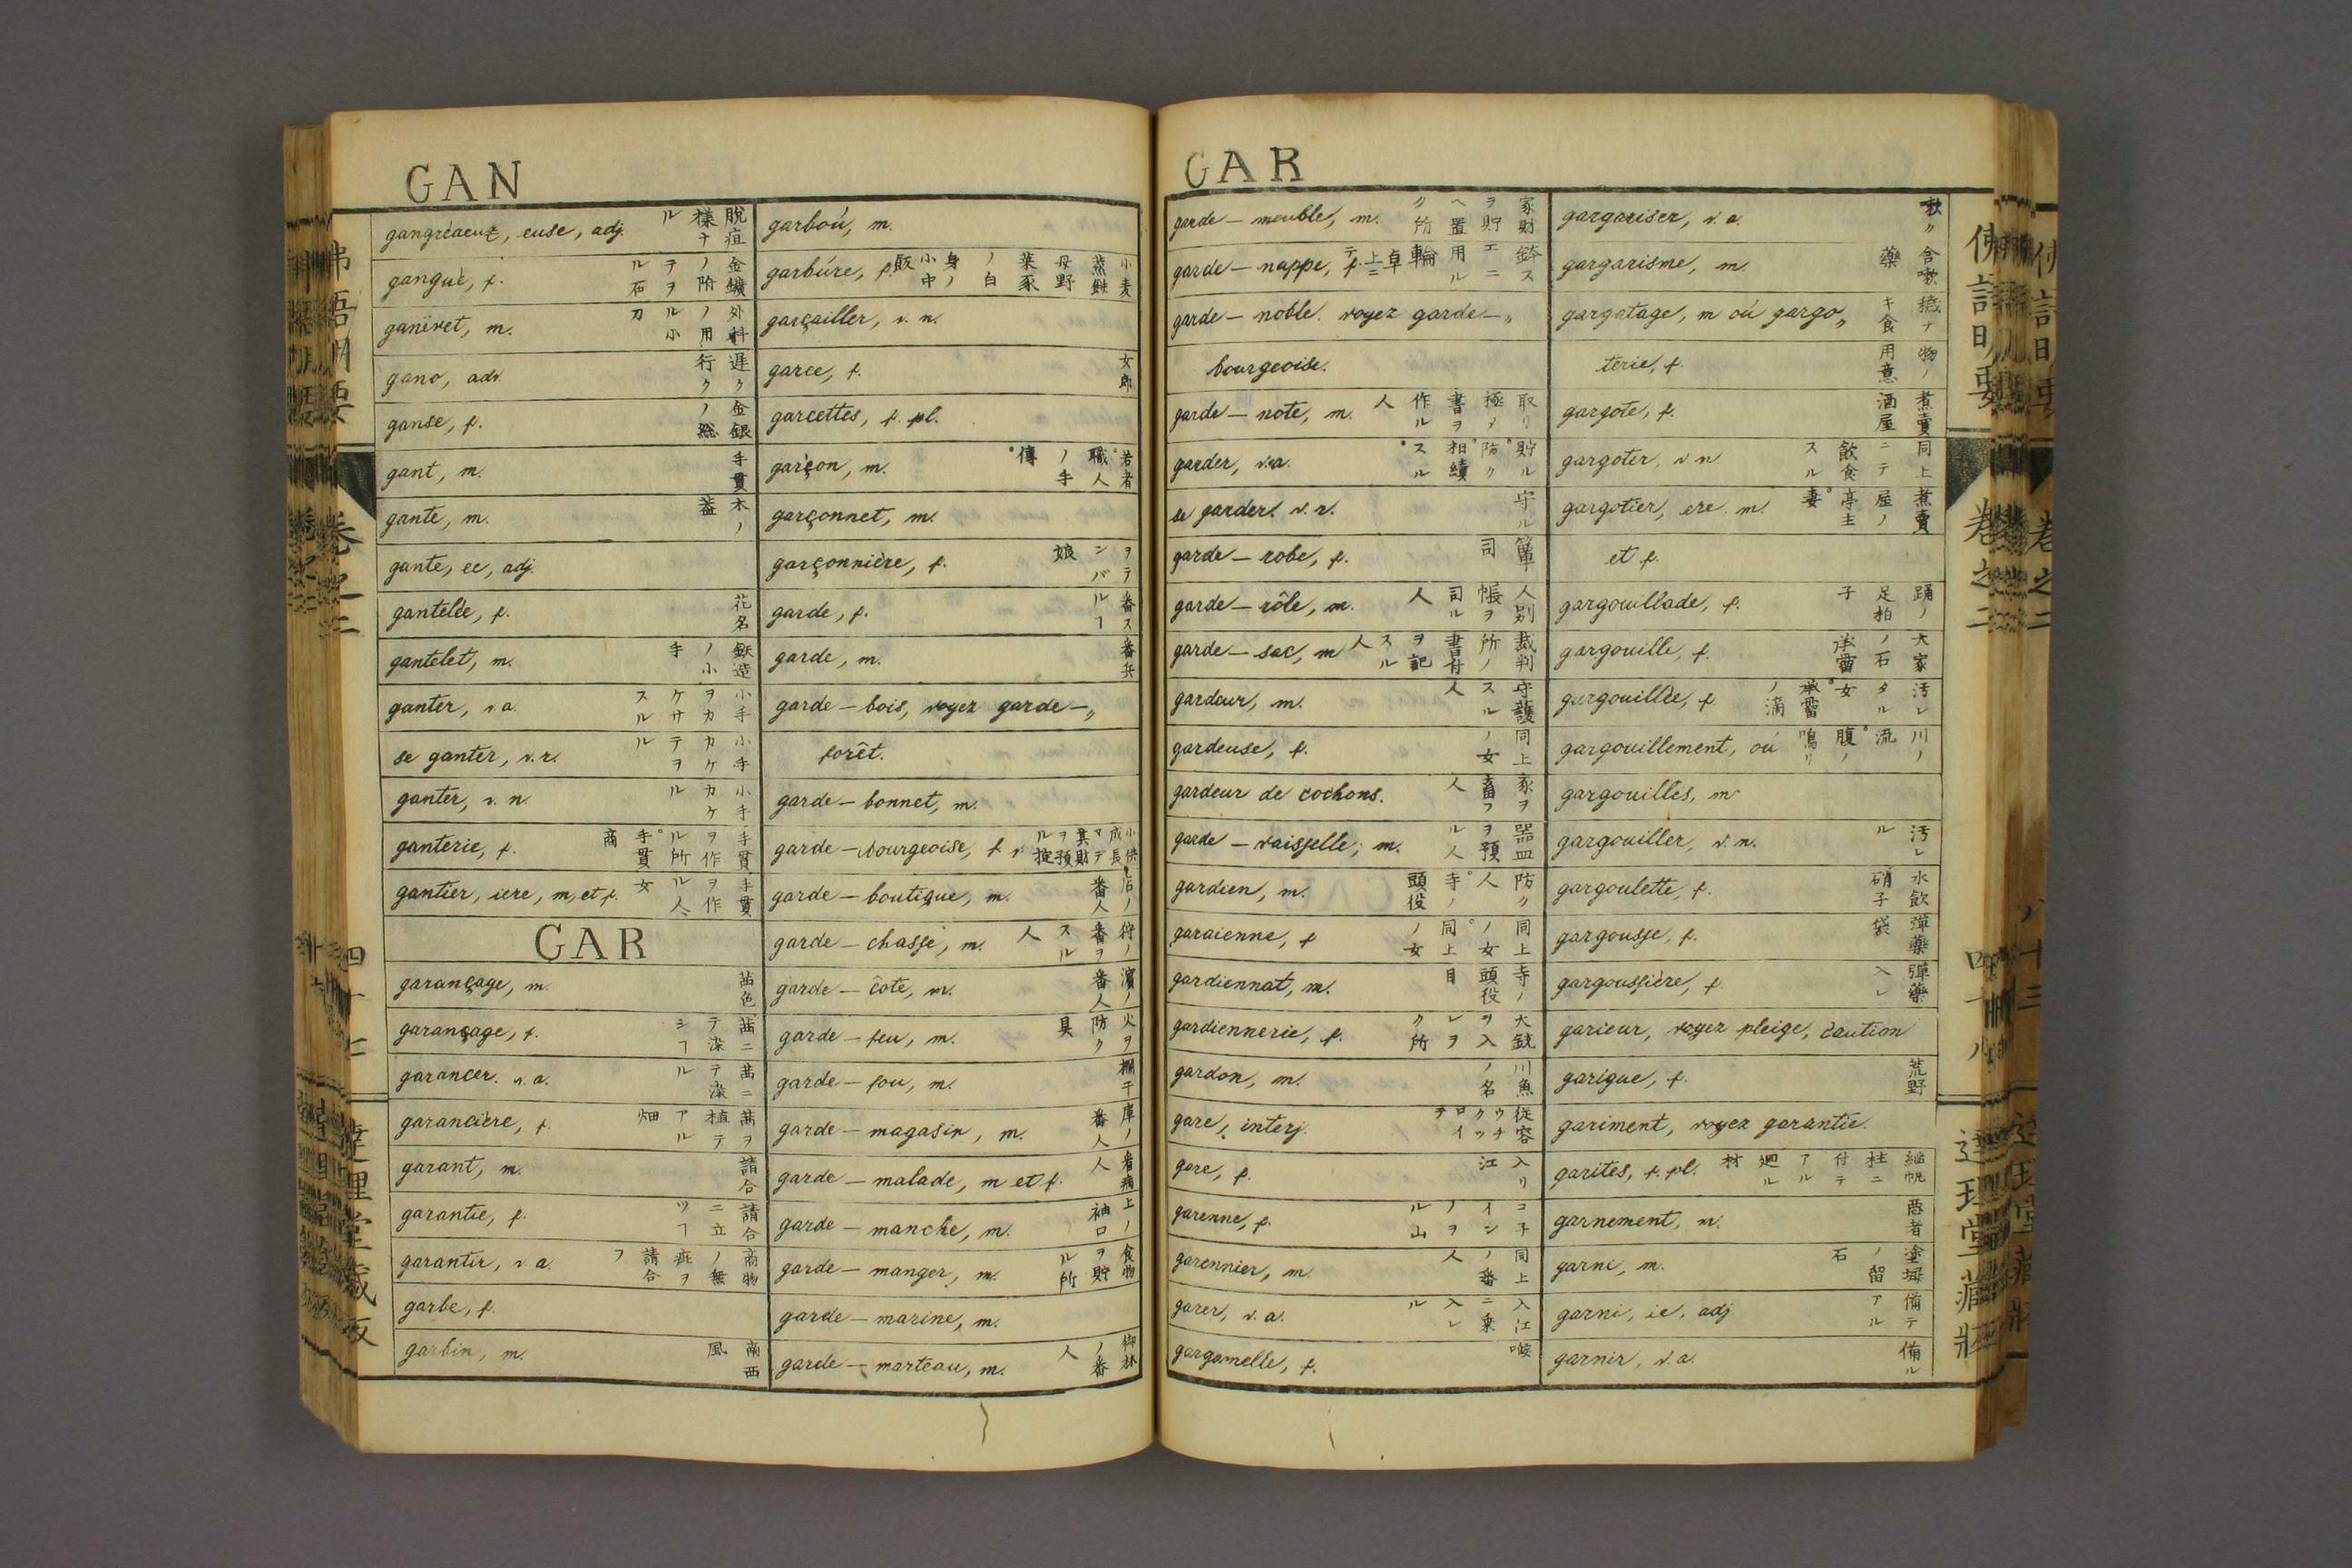 GAN
gangréaeuz, euse, adj. 脫疽樣ナル
gangue, f. 金鑛ノ附テヲル石
ganivet, m. 外科ノ用ルノ小刀
gano, adv. 遅ク行ク
ganse, f. 金銀ノ総
gant, m. 手貫
gante, m. 木ノ蓋
gante, ee, adj.
gantelée, f. 花名
gantelet, m. 鉄造ノ小手
ganter, v a. 小手ヲカケサスル
se ganter, v.r. 小手カケテヲル
ganter, v. n. 小手カケル
ganterie, f. 手貫ヲ作ル所。手貫商
gantier, iere, m, et f. 手貫ヲ作ル人、女
GAR
garançage, m. 茜色
garançage, f. 茜ニテ染シヿ
garancer. v. a. 茜ニテ染ル
garancière, f. 茜ヲ植テアル畑
garant, m. 請合
garantie, f. 請合ニ立ツヿ
garantir, v. a. 商物ノ無疵ヲ請合フ
garbe, f.
garbin, m. 南西風
garboú, m.
garbúre, f.
garçailler, v. n.
garce, f. 女郎
garcettes, f. pl.
garçon, m. 若者。職人ノ手傳。
garçonnet, m.
garçonnière, f. ヲテンバ娘
garde, f. 番スルヿ
garde, m. 番兵
garde-bois, voyez garde-„
forêt.
garde-bonnet, m.
garde-bourgeoise, f. 小供成長マデ其財ヲ預ル掟
garde-boutique, m. 店ノ番人
garde-chasse, m. 狩ノ番ヲスル人
garde-côte, m. 濱ノ番人
garde-feu, m. 火ヲ防ク具
garde-fou, m. 欄干
garde-magasin, m. 庫ノ番人
garde-malade, m et f. 看病人
garde-manche, m. 上ノ袖口
garde-manger, m. 食物ヲ貯ル所
garde-marine, m.
garde-marteau, m. 御林ノ番人
GAR
garde-meuble, m. 家財ヲ貯ヘ置ク所
garde-nappe, f.
garde-noble. voyez garde-„
bourgeoise.
garde-note, m. 取リ極メ書ヲ作ル人
garder, v.a. 貯ル。防ク。相續スル。
se garder. v. r. 守ル
garde-robe, f. 簞司
garde-rôle, m. 人別帳ヲ司ル人
garde-sac, m 裁判所ノ書付ヲ記スル人
gardeur, m. 守護スル人
gardeuse, f. 同上ノ女
gardeur de cochons. 豕ヲ畜フ人
garde-vaisselle; m. 器皿ヲ預ル人
gardien, m. 防ク人。寺ノ頭役
garaienne, f 同上ノ女。同上ノ女
gardiennat, m. 寺ノ頭役目
gardiennerie, f. 大銃ヲ入レヲク所
gardon, m. 川魚ノ名
gare, interj.
gare, f. 入リ江
garenne, f.
garennier, m. 同上ノ番人
garer, v. a. 入江ニ乗入レル
gargamelle, f. 喉
gargariser, v. a. 漱ク
gargarisme, m. 含嗽藥
gargotage, m oú gargo„ 穢ナキ食物ノ用意
terie, f.
gargote, f. 煮賣酒屋
gargoter, v n 同上ニテ飲食スル
gargotier, ere. m. 煮賣屋ノ亭主。妻
et f.
gargouillade, f. 踊ノ足拍子
gargouille, f. 大家ノ石承霤
gargouillée, f 汚レタル女。承霤ノ滴
gargouillement, oú 川ノ流。腹ノ鳴リ
gargouilles, m
gargouiller, v. n. 汚レル
gargoulette, f. 水飲硝子
gargousse, f. 彈藥袋
gargoussière, f 彈藥入レ
garieur, voyez pleige, caution
garigue, f. 荒野
gariment, voyez garantie.
garites, f. pl.
garnement, m. 悪者
garni, m. 塗塀ノ留石
garni, ie, adj 備テアル
garnir, v. a. 備ル
佛語明要
卷之二
達理堂藏版